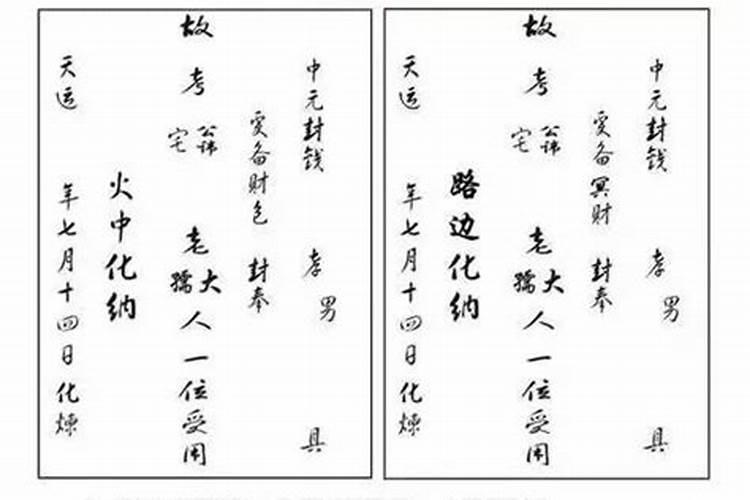 中元封钱 孝男 具
爰备财包 封奉
故考 公讳 宅 老大孺人一位受用
火中化纳
天运 年七月十四日化炼
中元封钱 孝男 具
爰备冥财 封奉
故考 公讳 宅 老大孺人一位受用
路边化纳
天运 年七月十四日化炼